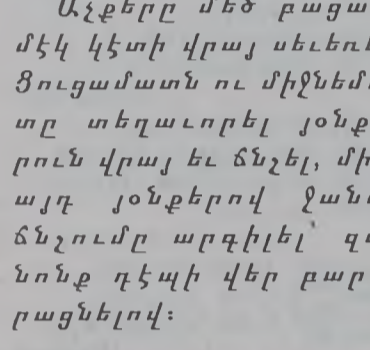 Աչքերը մեծ բացա
մէկ կէտի վրայ սեւեռ
Ցուցամատն ու միջնեմ
տը տեղաւորել յօնք
րուն վրայ եւ ճնշել, մի
այդ յօնքերով ջան
ճնշումը արգիլել զ
նոնք դէպի վեր բար
րացնելով։